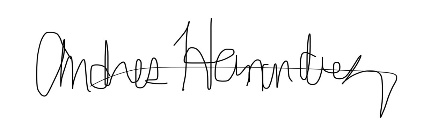 Andres Hernandez